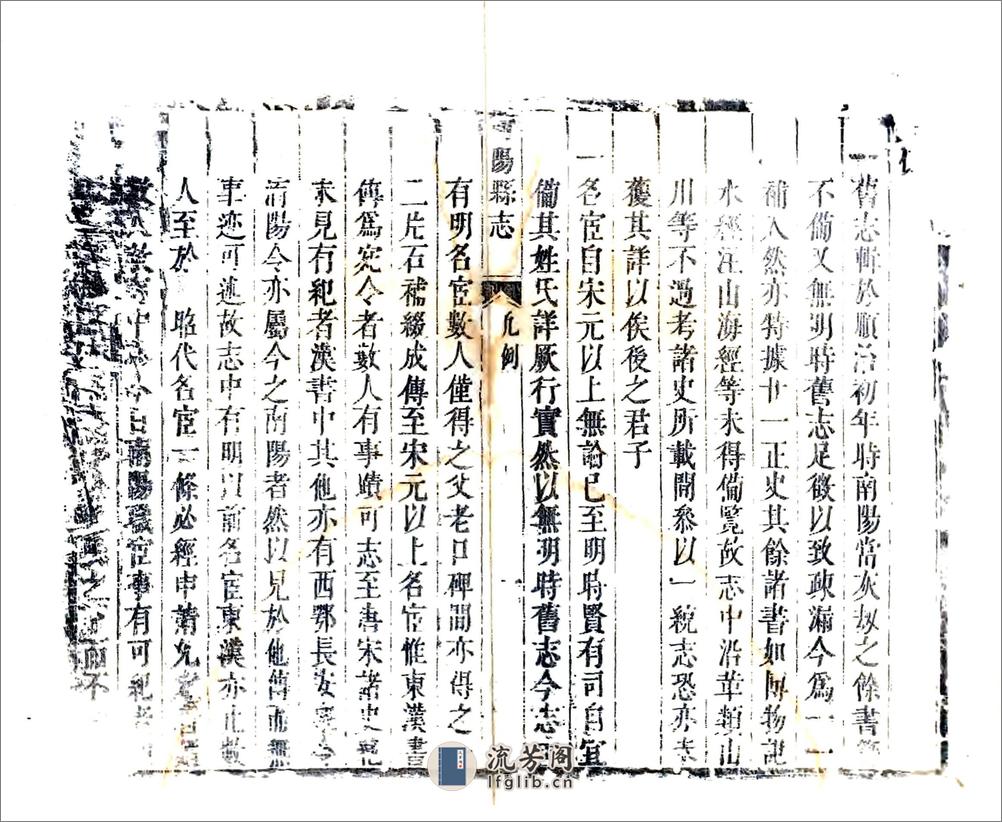 一舊志輯於順治初年時南陽當灰刼之餘書
不僃又無明時舊志足徵以致疎漏今爲一一
補入然亦特據廿一正史其餘諸書如博物記
水經注山海經等未得僃覧故志中沿革類山
川等不過考諸史所載間叅以一統志恐亦未
獲其詳以俟後之君子
一名宦自宋元以上無論已至明時賢有司自宜
僃其姓氏詳厥行實然以無明時舊志今志
陽縣志
凡例
有明名宦數人僅得之父老口碑間亦得之
二片石補綴成傳至宋元以上名宦惟東漢書
傳爲宛令者數人有事蹟可志至唐宋諸史
未見有紀者漢書中其他亦有西鄂長安
淯陽令亦屬今之南陽者然以見於他傳而無
事迹可述故志中有明以前名宦東漢亦止數
人至於 昭代名宦一條必經申請允
南陽 宦事有可紀者
之 而不
流芳阁
lfglib.cn